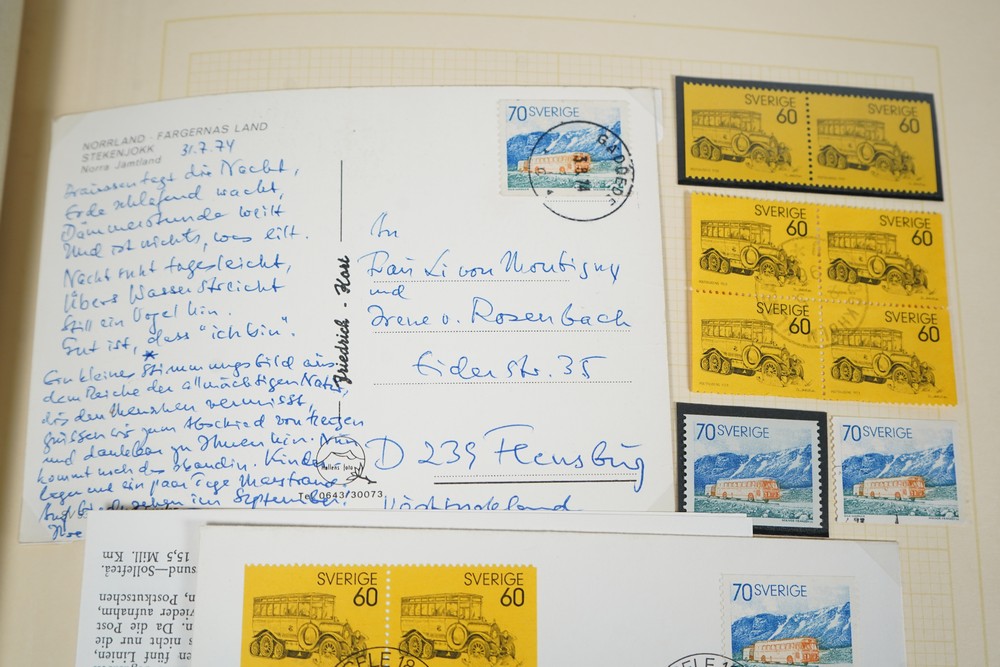 NORRLAND · FÄRGERNAS LAND
STEKENJOKK
Norra Jämtland
31.7.74
Draussen tagt die Nacht,
Erde schlafend wacht,
Dämmerstunde weilt
Und ist nichts, was eilt.
Nacht ruht tagesleicht,
Übers Wasser streicht
Still ein Vogel hin.
Gut ist, dass "ich bin".
*
Ein kleiner Stimmungsbild aus
dem Reiche der allmächtigen Natur,
das den Menschen vermisst,
grüssen wir zum Abschied von herzen
und dankbar zu Ihnen hin. Nun
kommt noch das Skandin. Kinder
und ein paar Tage Marstrand
im September.
Ihre
Friedrich - Karl
70 SVERIGE
GÄDDEDE
3.8.74
An
Frau Li von Montigny
und
Irene v. Rosenbach
Eiderstr. 35
D 239 Flensburg
Hallens foto
Tel. 0643/30073
SVERIGE
60
60
SVERIGE
60
SVERIGE
60
SVERIGE
60
SVERIGE
60
70 SVERIGE
70 SVERIGE
15,5 Mill. Km
sund—Sollefteå.
Postkutschen
vieder aufnahm,
n. Da die Post
s nicht nur die
fünf Linien,
SVERIGE
60
SVERIGE
60
70 SVERIGE